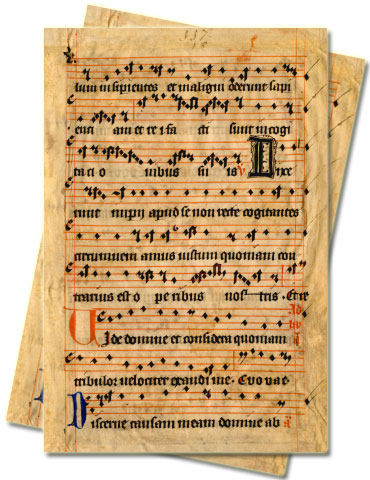 lum insipientes et maligni oderunt sapi
enci am et re i fa cti sunt in cogi
taci o nibus su is Dixe
runt impii apud se non recte cogitantes
circumueni amus iustum quoniam con
trarius est o peribus nos tris. Et re
Uide domine et considera quoniam
tribulor uelociter exaudi me. Euouae.
Discerne causam meam domine ab